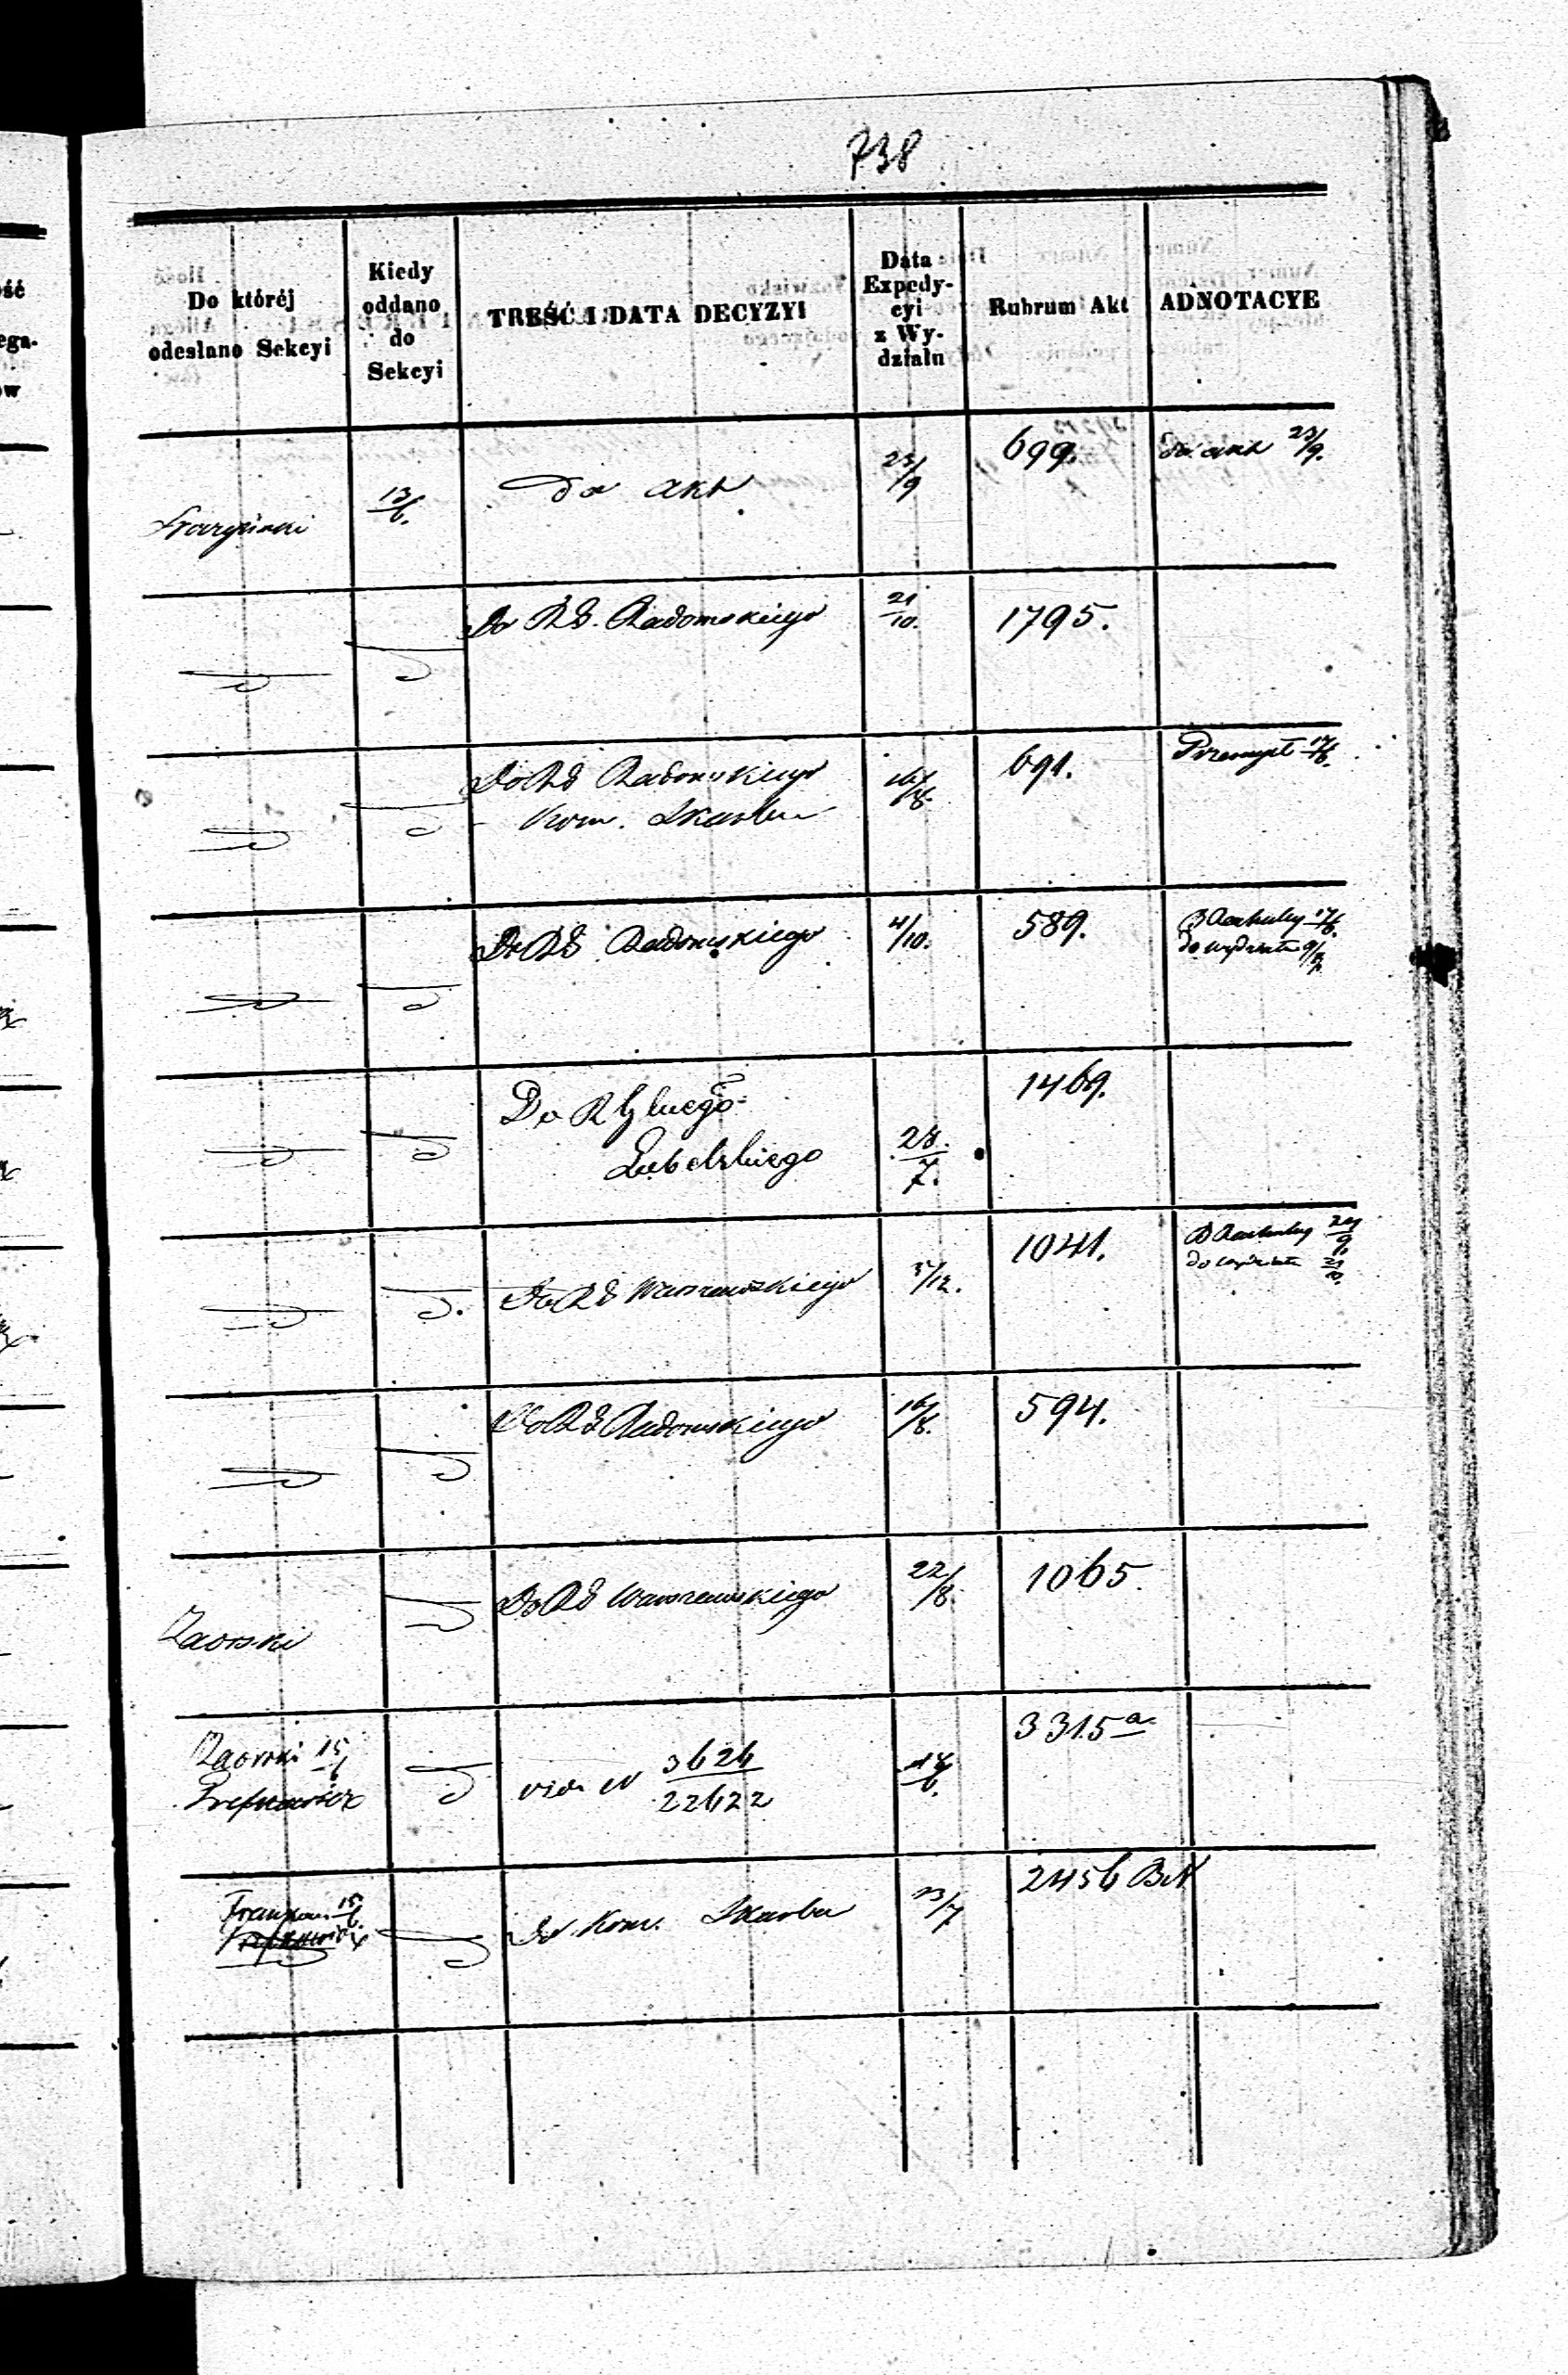 738
Do któréj odesłano Sekcyi
Kiedy oddano do Sekcyi
TREŚĆ I DATA DECYZYI
Data Expedycyi z Wydziału
Rubrum Akt
ADNOTACYE
13/6.
do akt
23/9
699.
do akt 23/9.
Do RG. Radomskiego
21/10.
1795.
Do RG Radomskiego
Kom. Skarbu
16/8.
691.
Przemysł 17/6.
Do RG Radomskiego
4/10.
589.
17/6.
do wydziału 9/8.
Do R Gluego
Lubelskiego
28/7.
1469.
Do RG Warszawskiego
5/12.
1041.
24/9.
do wydziału 21/10.
Do RG Radomskiego
16/8.
594.
Zaorski
Do RG Warszawskiego
22/8
1065.
Zaorski 15/6
vide N 3626/22622
18/6.
3315 a
15/6.
Do Kom. Skarbu
23/7
2456 BN